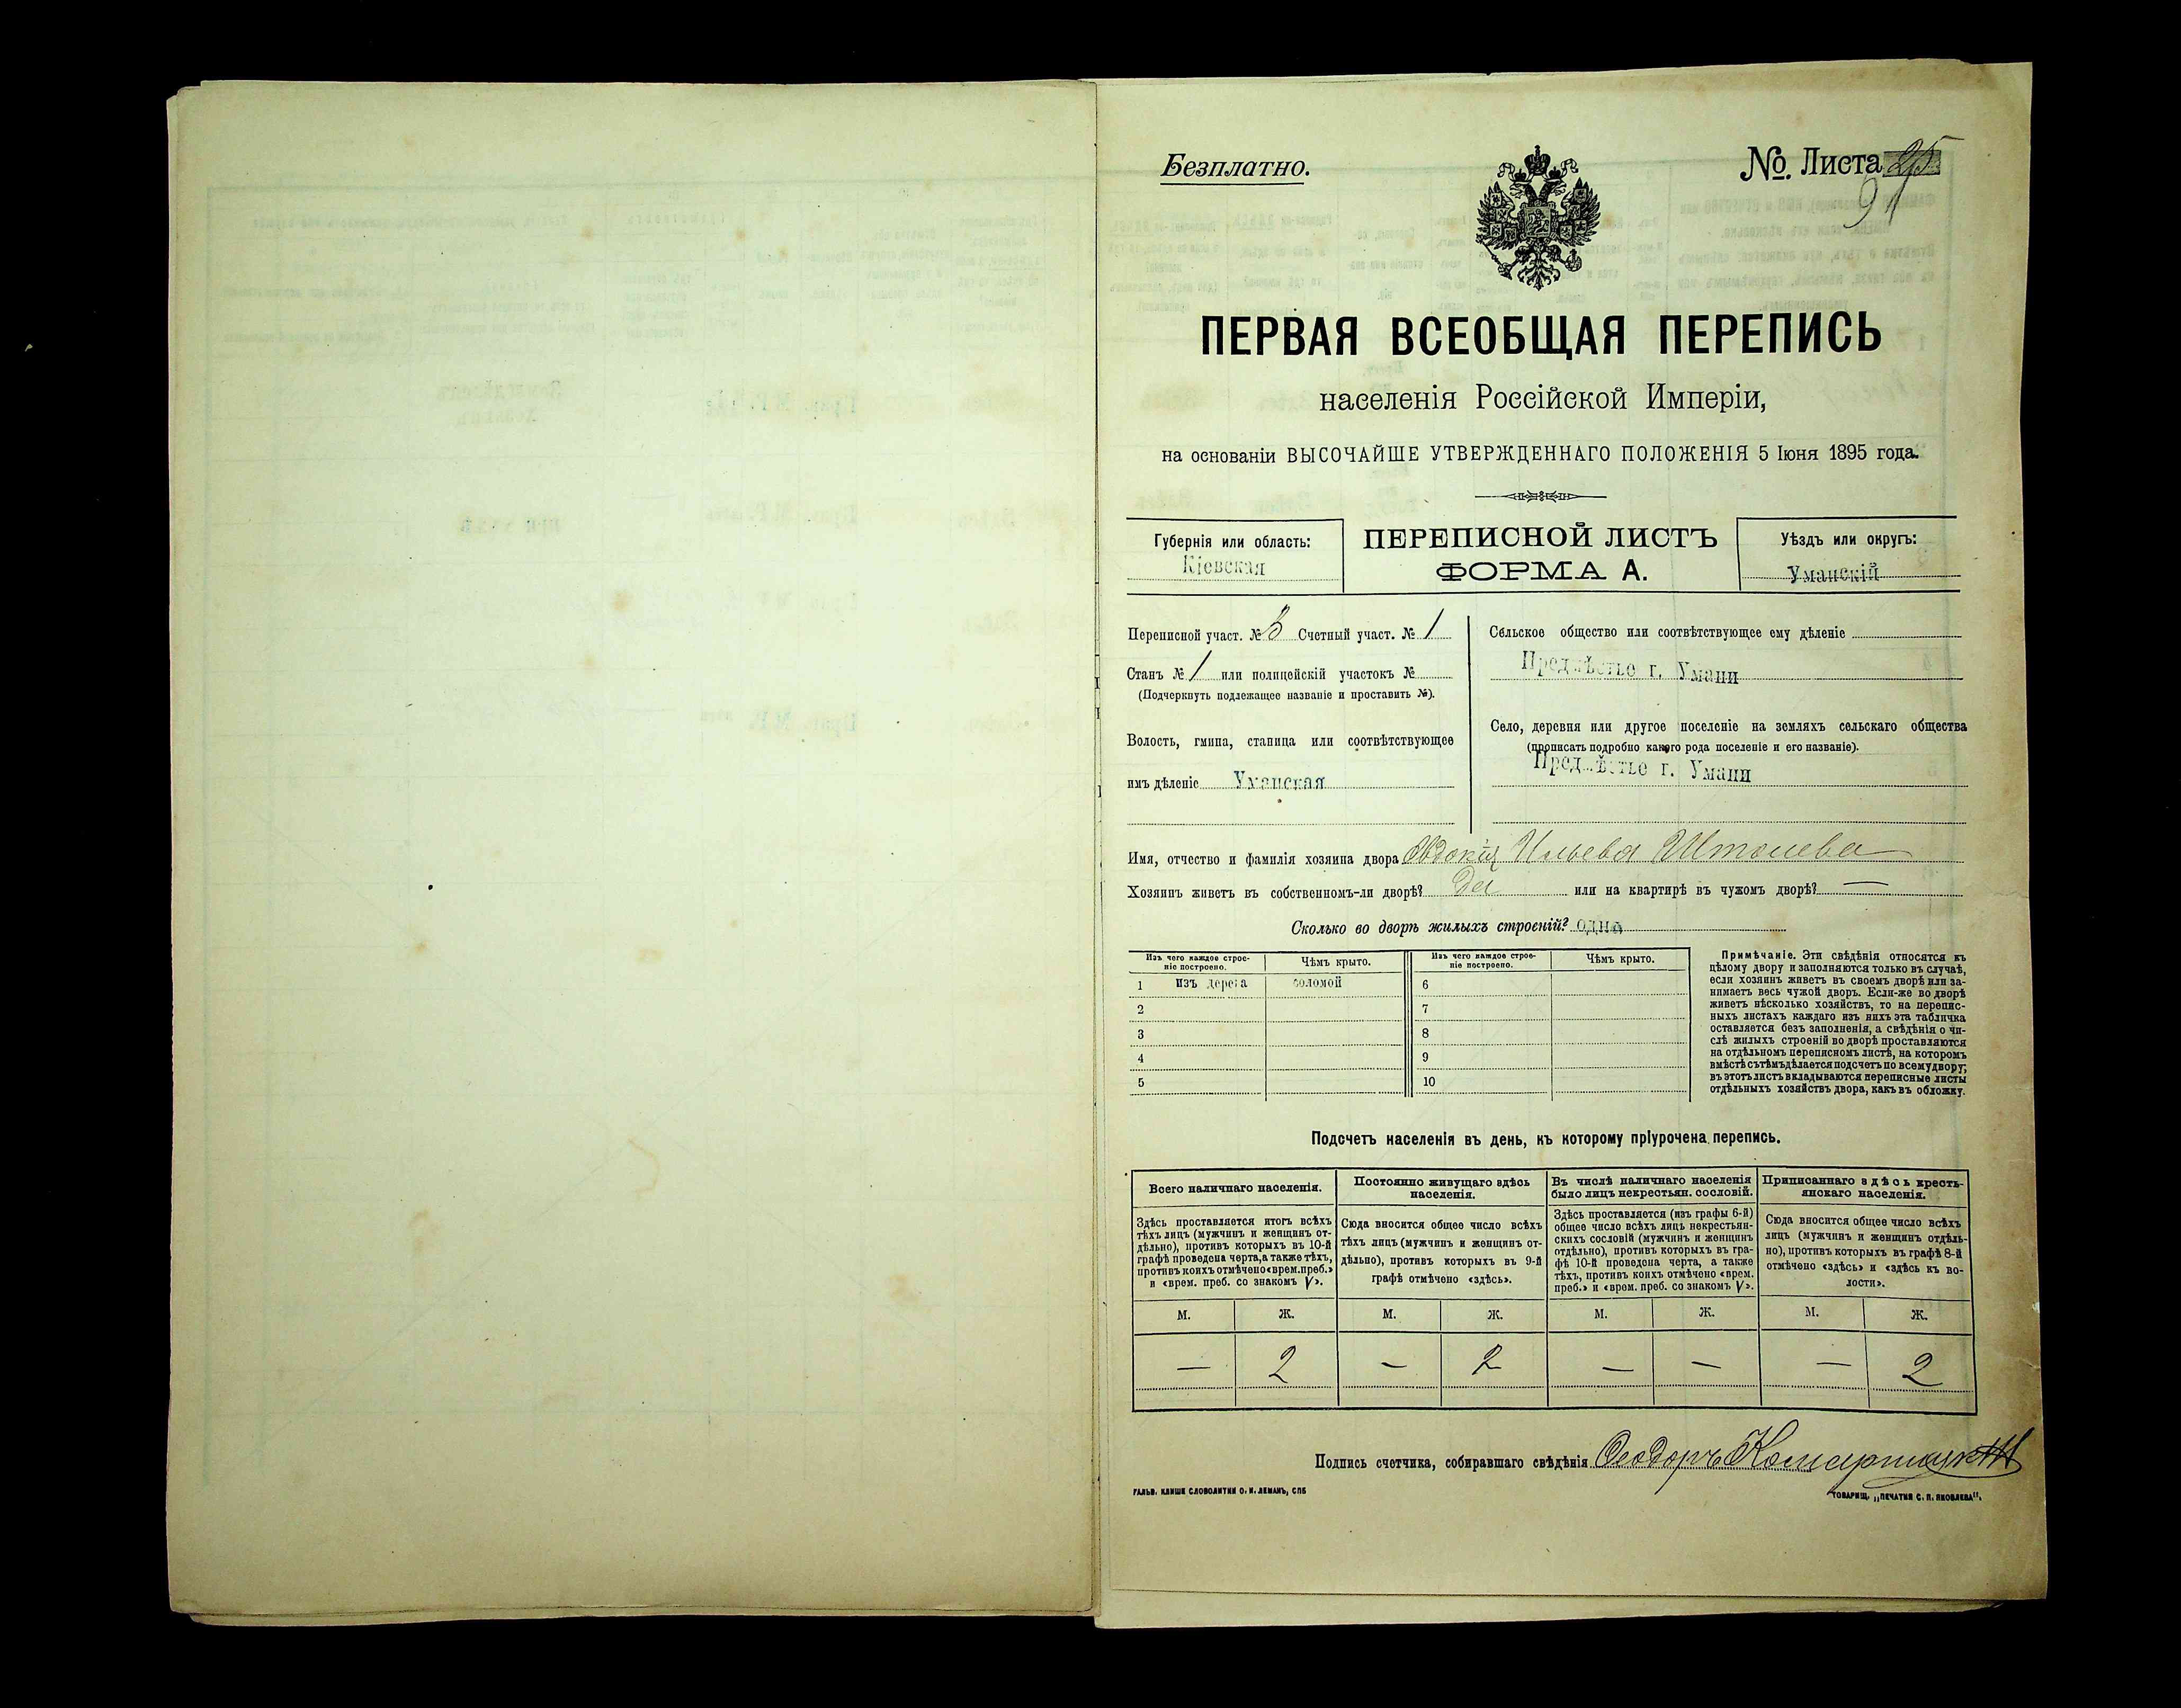 Безплатно.
№ Листа 25
91
ПЕРВАЯ ВСЕОБЩАЯ ПЕРЕПИСЬ
населенія Россійской Имперіи,
на основаніи ВЫСОЧАЙШЕ УТВЕРЖДЕННАГО ПОЛОЖЕНІЯ 5 Іюня 1895 года.
Губернія или область:
Кіевская
ПЕРЕПИСНОЙ ЛИСТЪ
ФОРМА А.
Уѣздъ или округъ:
Уманскій
Переписной участ. № Счетный участ. № 1
Станъ № 1 или полицейскій участокъ №
(Подчеркнуть подлежащее названіе и проставить №).
Волость, гмина, станица или соотвѣтствующее
имъ дѣленіе Уманская
Сельское общество или соотвѣтствующее ему дѣленіе
Предмѣстье г. Умани
Село, деревня или другое поселеніе на земляхъ сельскаго общества
(прописать подробно какого рода поселеніе и его названіе).
Предмѣстье г. Умани
Имя, отчество и фамилія хозяина двора Евдокія Ильева
Хозяинъ живетъ въ собственномъ-ли дворѣ? Да или на квартирѣ въ чужомъ дворѣ? —
Сколько во дворѣ жилыхъ строеній? одно
Изъ чего каждое строе-
ніе построено.
Чѣмъ крыто.
Изъ чего каждое строе-
ніе построено.
Чѣмъ крыто.
1 изъ дерева соломой 6
2 7
3 8
4 9
5 10
Примѣчаніе. Эти свѣдѣнія относятся къ
цѣлому двору и заполняются только въ случаѣ,
если хозяинъ живетъ въ своемъ дворѣ или за-
нимаетъ весь чужой дворъ. Если-же во дворѣ
живетъ нѣсколько хозяйствъ, то на перепис-
ныхъ листахъ каждаго изъ нихъ эта табличка
оставляется безъ заполненія, а свѣдѣнія о чи-
слѣ жилыхъ строеній во дворѣ проставляются
на отдѣльномъ переписномъ листѣ, на которомъ
вмѣстѣ съ тѣмъ дѣлается подсчетъ по всему двору;
въ этотъ листъ вкладываются переписные листы
отдѣльныхъ хозяйствъ двора, какъ въ обложку.
Подсчетъ населенія въ день, къ которому пріурочена перепись.
Всего наличнаго населенія.
Постоянно живущаго здѣсь
населенія.
Въ числѣ наличнаго населенія
было лицъ некрестьян. сословій.
Приписаннаго здѣсь кресть-
янскаго населенія.
Здѣсь проставляется итогъ всѣхъ
тѣхъ лицъ (мужчинъ и женщинъ от-
дѣльно), противъ которыхъ въ 10-й
графѣ проведена черта, а также тѣхъ,
противъ коихъ отмѣчено «врем. преб.»
и «врем. преб. со знакомъ V».
Сюда вносится общее число всѣхъ
тѣхъ лицъ (мужчинъ и женщинъ от-
дѣльно), противъ которыхъ въ 9-й
графѣ отмѣчено «здѣсь».
Здѣсь проставляется (изъ графы 6-й)
общее число всѣхъ лицъ некрестьян-
скихъ сословій (мужчинъ и женщинъ
отдѣльно), противъ которыхъ въ гра-
фѣ 10-й проведена черта, а также
тѣхъ, противъ коихъ отмѣчено «врем.
преб.» и «врем. преб. со знакомъ V».
Сюда вносится общее число всѣхъ
лицъ (мужчинъ и женщинъ отдѣль-
но), противъ которыхъ въ графѣ 8-й
отмѣчено «здѣсь» и «здѣсь къ во-
лости».
М. Ж. М. Ж. М. Ж. М. Ж.
— 2 — 2 — — — 2
Подпись счетчика, собиравшаго свѣдѣнія Ѳеодоръ
ГАЛЬВ. КЛИШЕ СЛОВОЛИТНИ О. И. ЛЕМАНЪ, СПБ
ТОВАРИЩ. „ПЕЧАТНЯ С. П. ЯКОВЛЕВА".